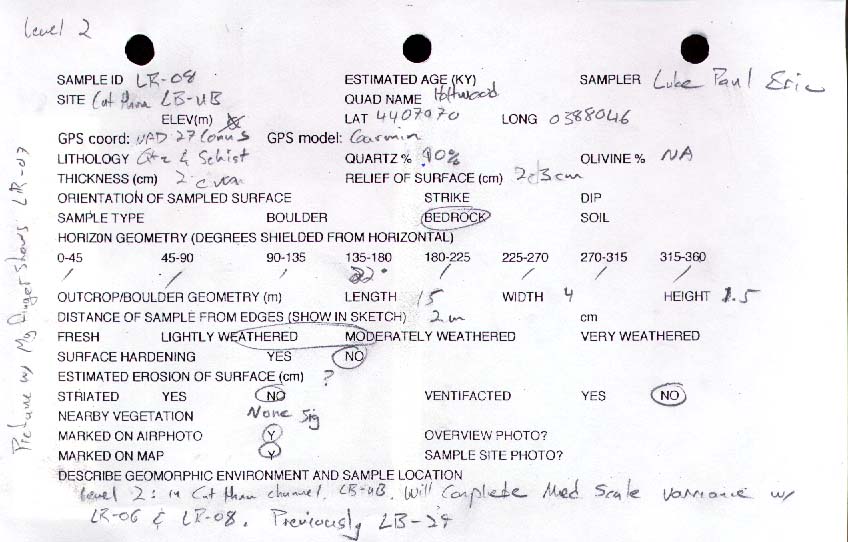 Level 2
SAMPLE ID LR-08 ESTIMATED AGE (KY) SAMPLER Luke Paul Eric
SITE Cut thru LB-UB QUAD NAME Holtwood
ELEV(m) LAT 4407070 LONG 0388046
GPS coord: NAD 27 Conus GPS model: Garmin
LITHOLOGY Qtz & Schist QUARTZ % 90% OLIVINE % NA
THICKNESS (cm) 2 RELIEF OF SURFACE (cm)
ORIENTATION OF SAMPLED SURFACE STRIKE DIP
SAMPLE TYPE BOULDER BEDROCK SOIL
HORIZON GEOMETRY (DEGREES SHIELDED FROM HORIZONTAL)
0-45 45-90 90-135 135-180 180-225 225-270 270-315 315-360
/ / / 22° / / / /
OUTCROP/BOULDER GEOMETRY (m) LENGTH 15 WIDTH 4 HEIGHT 1.5
DISTANCE OF SAMPLE FROM EDGES (SHOW IN SKETCH) 2m cm
FRESH LIGHTLY WEATHERED MODERATELY WEATHERED VERY WEATHERED
SURFACE HARDENING YES NO
ESTIMATED EROSION OF SURFACE (cm) ?
STRIATED YES NO VENTIFACTED YES NO
NEARBY VEGETATION None Sig
MARKED ON AIRPHOTO Y OVERVIEW PHOTO?
MARKED ON MAP Y SAMPLE SITE PHOTO?
DESCRIBE GEOMORPHIC ENVIRONMENT AND SAMPLE LOCATION
Level 2: in Cut thru channel, LB-UB. Will Complete Med Scale variance w/
LR-06 & LR-08. Previously LB-29
Picture w/ My finger shows LR-07